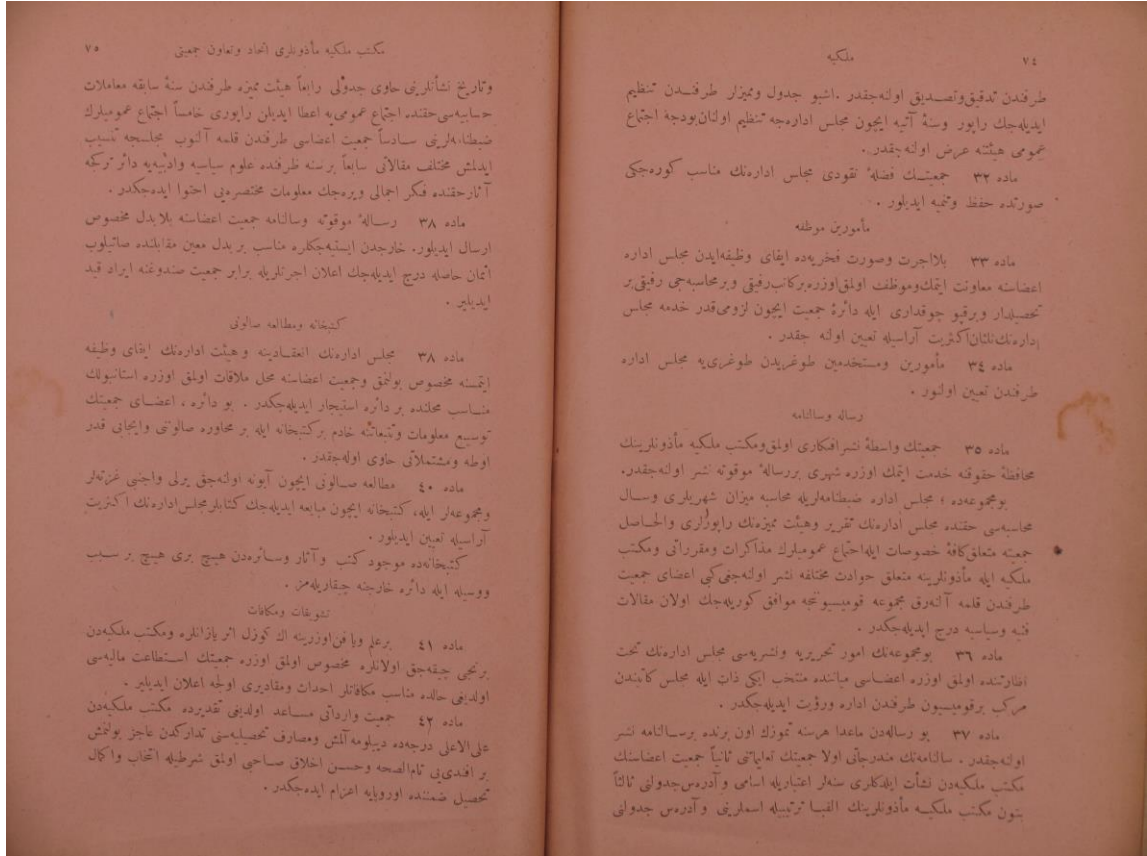 ٧٤
ملكيه
طرفندن تدقيق وتصديق اولنه‌جقدر. اشبو جدول ومميزلر طرفندن تنظيم
ايديله‌جك راپور وسنهٔ آتيه ايچون مجلس اداره‌جه تنظيم اولنان بودجه اجتماع
عمومى هيئتنه عرض اولنه‌جقدر.
ماده ٣٢ جمعيتك فضلهٔ نقودى مجلس اداره‌نك مناسب كوره‌جكى
صورتده حفظ وتنميه ايديلور.
مأمورين موظفه
ماده ٣٣ بلااجرت وصورت فخريه‌ده ايفاى وظيفه‌ايدن مجلس اداره
اعضاسنه معاونت ايتمك وموظف اولمق اوزره بركاتب رفيقى وبرمحاسبه‌جى رفيقى بر
تحصيلدار وبرقپو چوقدارى ايله دائرهٔ جمعيت ايچون لزومى قدر خدمه مجلس
اداره‌نك ثلثان اكثريت آراسيله تعيين اولنه جقدر.
ماده ٣٤ مأمورين ومستخدمين طوغريدن طوغرى‌يه مجلس اداره
طرفندن تعيين اولنور.
رساله وسالنامه
ماده ٣٥ جمعيتك واسطهٔ نشر افكارى اولمق ومكتب ملكيه مأذونلرينك
محافظهٔ حقوقنه خدمت ايتمك اوزره شهرى بررسالهٔ موقوته نشر اولنه‌جقدر.
بومجموعه‌ده ؛ مجلس اداره ضبطنامه‌لريله محاسبه ميزان شهريلرى وسال
محاسبه‌سى حقنده مجلس اداره‌نك تقرير وهيئت مميزه‌نك راپورلرى والحاصل
جمعيته متعلق كافهٔ خصوصات ايله اجتماع عموميلرك مذاكرات ومقرراتى ومكتب
ملكيه ايله مأذونلرينه متعلق حوادث مختلفه نشر اولنه‌جغى كبى اعضاى جمعيت
طرفندن قلمه آلنه‌رق مجموعه قوميسيوننجه موافق كوريله‌جك اولان مقالات
فنيه وسياسيه درج ايديله‌جكدر.
ماده ٣٦ بومجموعه‌نك امور تحريريه ونشريه‌سى مجلس اداره‌نك تحت
نظارتنده اولمق اوزره اعضاسى مياننده منتخب ايكى ذات ايله مجلس كاتبندن
مركب برقوميسيون طرفندن اداره ورؤيت ايديله‌جكدر.
ماده ٣٧ بو رساله‌دن ماعدا هرسنه تموزك اون برنده برسالنامه نشر
اولنه‌جقدر. سالنامه‌نك مندرجاتى اولا جمعيتك تعليماتنى ثانياً جمعيت اعضاسنك
مكتب ملكيه‌دن نشأت ايلدكلرى سنه‌لر اعتباريله اسامى وآدره‌س جدولنى ثالثاً
بتون مكتب ملكيه مأذونلرينك الفبا ترتيبيله اسملرينى وآدره‌س جدولنى
مكتب ملكيه مأذونلرى اتحاد وتعاون جمعيتى
٧٥
وتاريخ نشأتلرينى حاوى جدولى رابعاً هيئت مميزه طرفندن سنهٔ سابقه معاملات
حسابيه‌سى حقنده اجتماع عمومى‌يه اعطا ايديلن راپورى خامساً اجتماع عموميلرك
ضبطنامه‌لرينى سادساً جمعيت اعضاسى طرفندن قلمه آلنوب مجلسجه تنسيب
ايدلمش مختلف مقالاتى سابعاً برسنه ظرفنده علوم سياسيه وادبيه‌يه دائر تركجه
آثار حقنده فكر اجمالى ويره‌جك معلومات مختصره‌يى احتوا ايده‌جكدر.
ماده ٣٨ رسالهٔ موقوته وسالنامه جمعيت اعضاسنه بلابدل مخصوص
ارسال ايديلور. خارجدن ايستيه‌جكلره مناسب بر بدل معين مقابلنده صاتيلوب
اثمان حاصله درج ايديله‌جك اعلان اجرتلريله برابر جمعيت صندوغنه ايراد قيد
ايديلير.
كتبخانه ومطالعه صالونى
ماده ٣٨ مجلس اداره‌نك انعقادينه وهيئت اداره‌نك ايفاى وظيفه
ايتمسنه مخصوص بولنمق وجمعيت اعضاسنه محل ملاقات اولمق اوزره استانبولك
مناسب محلنده بر دائره استيجار ايديله‌جكدر. بو دائره ، اعضاى جمعيتك
توسيع معلومات وتتبعاتنه خادم بركتبخانه ايله بر محاوره صالوننى وايجابى قدر
اوطه ومشتملاتى حاوى اوله‌جقدر.
ماده ٤٠ مطالعه صالونى ايچون آبونه اولنه‌جق يرلى واجنبى غزته‌لر
ومجموعه‌لر ايله، كتبخانه ايچون مبايعه ايديله‌جك كتابلر مجلس اداره‌نك اكثريت
آراسيله تعيين ايديلور.
كتبخانه‌ده موجود كتب وآثار وسائره‌دن هيچ برى هيچ بر سبب
ووسيله ايله دائره خارجنه چيقاريله‌مز.
تشويقات ومكافات
ماده ٤١ برعلم ويا فن اوزرينه اك كوزل اثر يازانلره ومكتب ملكيه‌دن
برنجى چيقه‌جق اولانلره مخصوص اولمق اوزره جمعيتك استطاعت ماليه‌سى
اولديغى حالده مناسب مكافاتلر احداث ومقاديرى اولجه اعلان ايديلير.
ماده ٤٢ جمعيت وارداتى مساعد اولديغى تقديرده مكتب ملكيه‌دن
على الاعلى درجه‌ده ديپلومه آلمش ومصارف تحصيليه‌سنى تداركدن عاجز بولنمش
بر افندى‌يى تام‌الصحه وحسن اخلاق صاحبى اولمق شرطيله انتخاب واكمال
تحصيل ضمننده اوروپايه اعزام ايده‌جكدر.